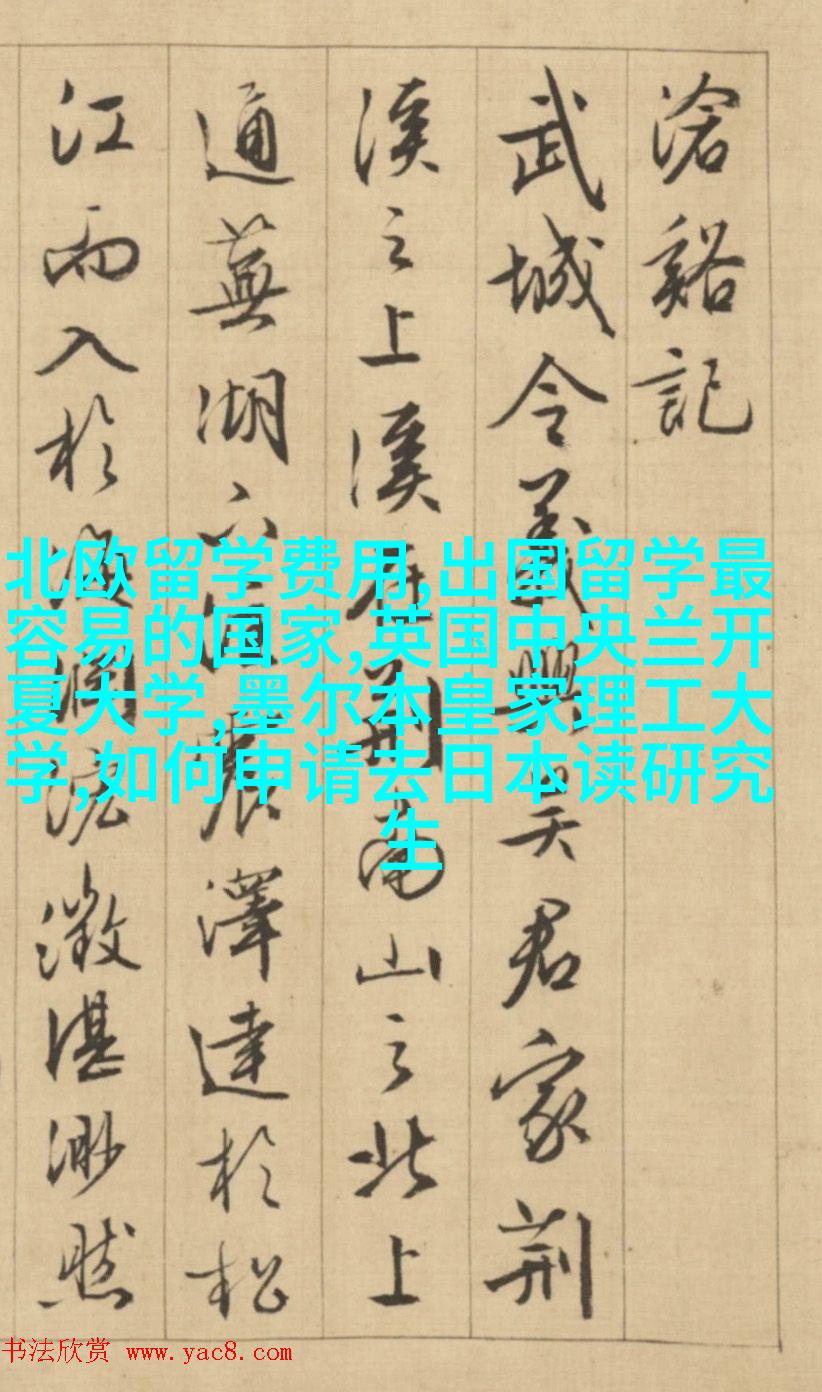 滄谿記
武城令義興吴君家荆
溪之上溪在荆南山之北上
通蕪湖下匯震澤達於松
江而入於海瀾沄澂湛渺然
北欧留学费用,出国留学最
容易的国家,英国中央兰开
夏大学,墨尔本皇家理工大
学,如何申请去日本读研究
生
书法欣赏 www.yac8.com